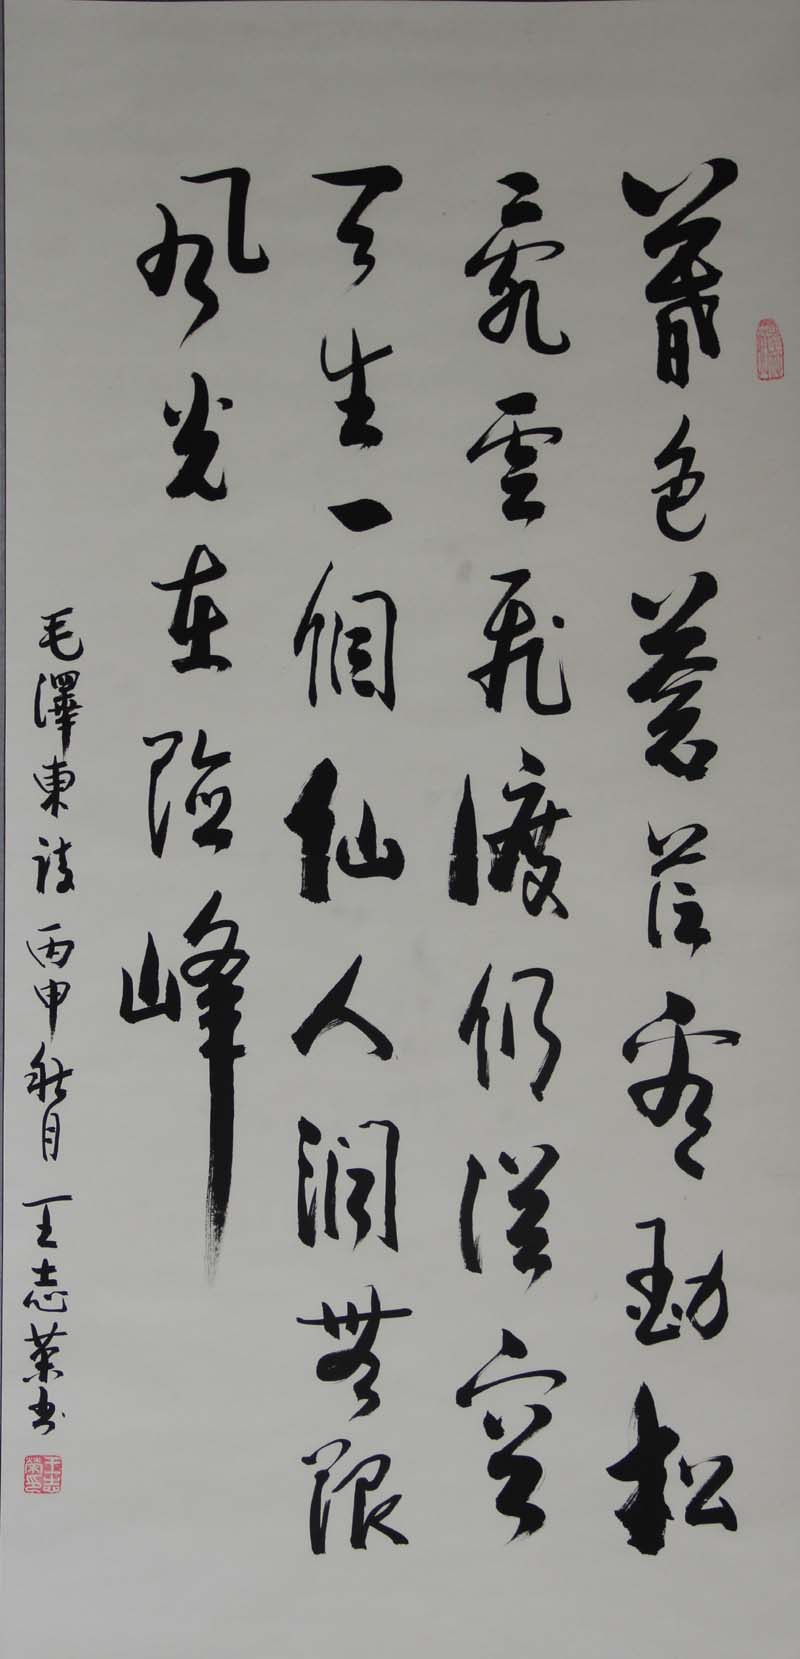 暮色蒼茫看勁松
亂雲飛渡仍從容
天生一個仙人洞無限
風光在險峰
毛澤東詩丙申秋月王志榮書
王志榮印